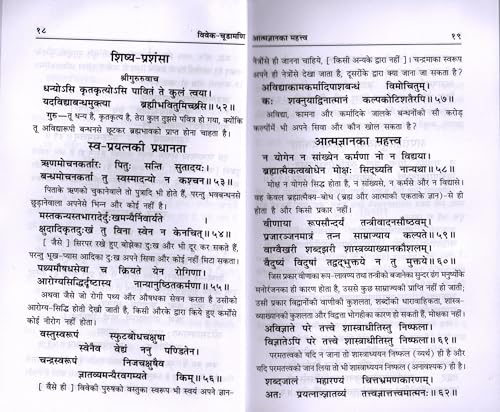 १८
विवेक-चूडामणि
शिष्य-प्रशंसा
श्रीगुरुरुवाच
धन्योऽसि कृतकृत्योऽसि पावितं ते कुलं त्वया।
यदविद्याबन्धमुक्त्या ब्रह्मीभवितुमिच्छसि॥५२॥
गुरु—तू धन्य है, कृतकृत्य है, तेरा कुल तुझसे पवित्र हो गया, क्योंकि
तू अविद्यारूपी बन्धनसे छूटकर ब्रह्मभावको प्राप्त होना चाहता है।
स्व-प्रयत्नकी प्रधानता
ऋणमोचनकर्तारः पितुः सन्ति सुतादयः।
बन्धमोचनकर्ता तु स्वस्मादन्यो न कश्चन॥५३॥
पिताके ऋणको चुकानेवाले तो पुत्रादि भी होते हैं, परन्तु भवबन्धनसे
छुड़ानेवाला अपनेसे भिन्न और कोई नहीं है।
मस्तकन्यस्तभारादेर्दुःखमन्यैर्निवार्यते ।
क्षुधादिकृतदुःखं तु विना स्वेन न केनचित्॥५४॥
[ जैसे ] सिरपर रखे हुए बोझेका दुःख और भी दूर कर सकते हैं,
परन्तु भूख-प्यास आदिका दुःख अपने सिवा और कोई नहीं मिटा सकता।
पथ्यमौषधसेवा च क्रियते येन रोगिणा।
आरोग्यसिद्धिर्दृष्टास्य नान्यानुष्ठितकर्मणा॥५५॥
अथवा जैसे जो रोगी पथ्य और औषधका सेवन करता है उसीको
आरोग्य-सिद्धि होती देखी जाती है, किसी औरके द्वारा किये हुए कर्मोंसे
कोई नीरोग नहीं होता।
वस्तुस्वरूपं स्फुटबोधचक्षुषा
स्वेनैव वेद्यं ननु पण्डितेन।
चन्द्रस्वरूपं निजचक्षुषैव
ज्ञातव्यमन्यैरवगम्यते किम्॥५६॥
[ वैसे ही ] विवेकी पुरुषको वस्तुका स्वरूप भी स्वयं अपने ज्ञान-
आत्मज्ञानका महत्त्व
१९
नेत्रोंसे ही जानना चाहिये, [ किसी अन्यके द्वारा नहीं ]। चन्द्रमाका स्वरूप
अपने ही नेत्रोंसे देखा जाता है, दूसरोंके द्वारा क्या जाना जा सकता है?
अविद्याकामकर्मादिपाशबन्धं विमोचितुम्।
कः शक्नुयाद्विनात्मानं कल्पकोटिशतैरपि॥५७॥
अविद्या, कामना और कर्मादिके जालके बन्धनोंको सौ करोड़
कल्पोंमें भी अपने सिवा और कौन खोल सकता है?
आत्मज्ञानका महत्त्व
न योगेन न सांख्येन कर्मणा नो न विद्यया।
ब्रह्मात्मैकत्वबोधेन मोक्षः सिद्ध्यति नान्यथा॥५८॥
मोक्ष न योगसे सिद्ध होता है, न सांख्यसे, न कर्मसे और न विद्यासे।
वह केवल ब्रह्मात्मैक्य-बोध (ब्रह्म और आत्माकी एकताके ज्ञान)-से ही
होता है और किसी प्रकार नहीं।
वीणाया रूपसौन्दर्यं तन्त्रीवादनसौष्ठवम्।
प्रजारञ्जनमात्रं तन्न साम्राज्याय कल्पते॥५९॥
वाग्वैखरी शब्दझरी शास्त्रव्याख्यानकौशलम्।
वैदुष्यं विदुषां तद्वद्भुक्तये न तु मुक्तये॥६०॥
जिस प्रकार वीणाका रूप-लावण्य तथा तन्त्रीको बजानेका सुन्दर ढंग मनुष्योंके
मनोरंजनका ही कारण होता है, उससे कुछ साम्राज्यकी प्राप्ति नहीं हो जाती;
उसी प्रकार विद्वानोंकी वाणीकी कुशलता, शब्दोंकी धारावाहिकता, शास्त्र-
व्याख्यानकी कुशलता और विद्वत्ता भोगहीका कारण हो सकती हैं, मोक्षका नहीं।
अविज्ञाते परे तत्त्वे शास्त्राधीतिस्तु निष्फला।
विज्ञातेऽपि परे तत्त्वे शास्त्राधीतिस्तु निष्फला॥६१॥
परमतत्त्वको यदि न जाना तो शास्त्राध्ययन निष्फल (व्यर्थ) ही है और
यदि परमतत्त्वको जान लिया तो भी शास्त्राध्ययन निष्फल (अनावश्यक) ही है।
शब्दजालं महारण्यं चित्तभ्रमणकारणम्।
अतः प्रयत्नाज्ज्ञातव्यं तत्त्वज्ञात्तत्त्वमात्मनः॥६२॥